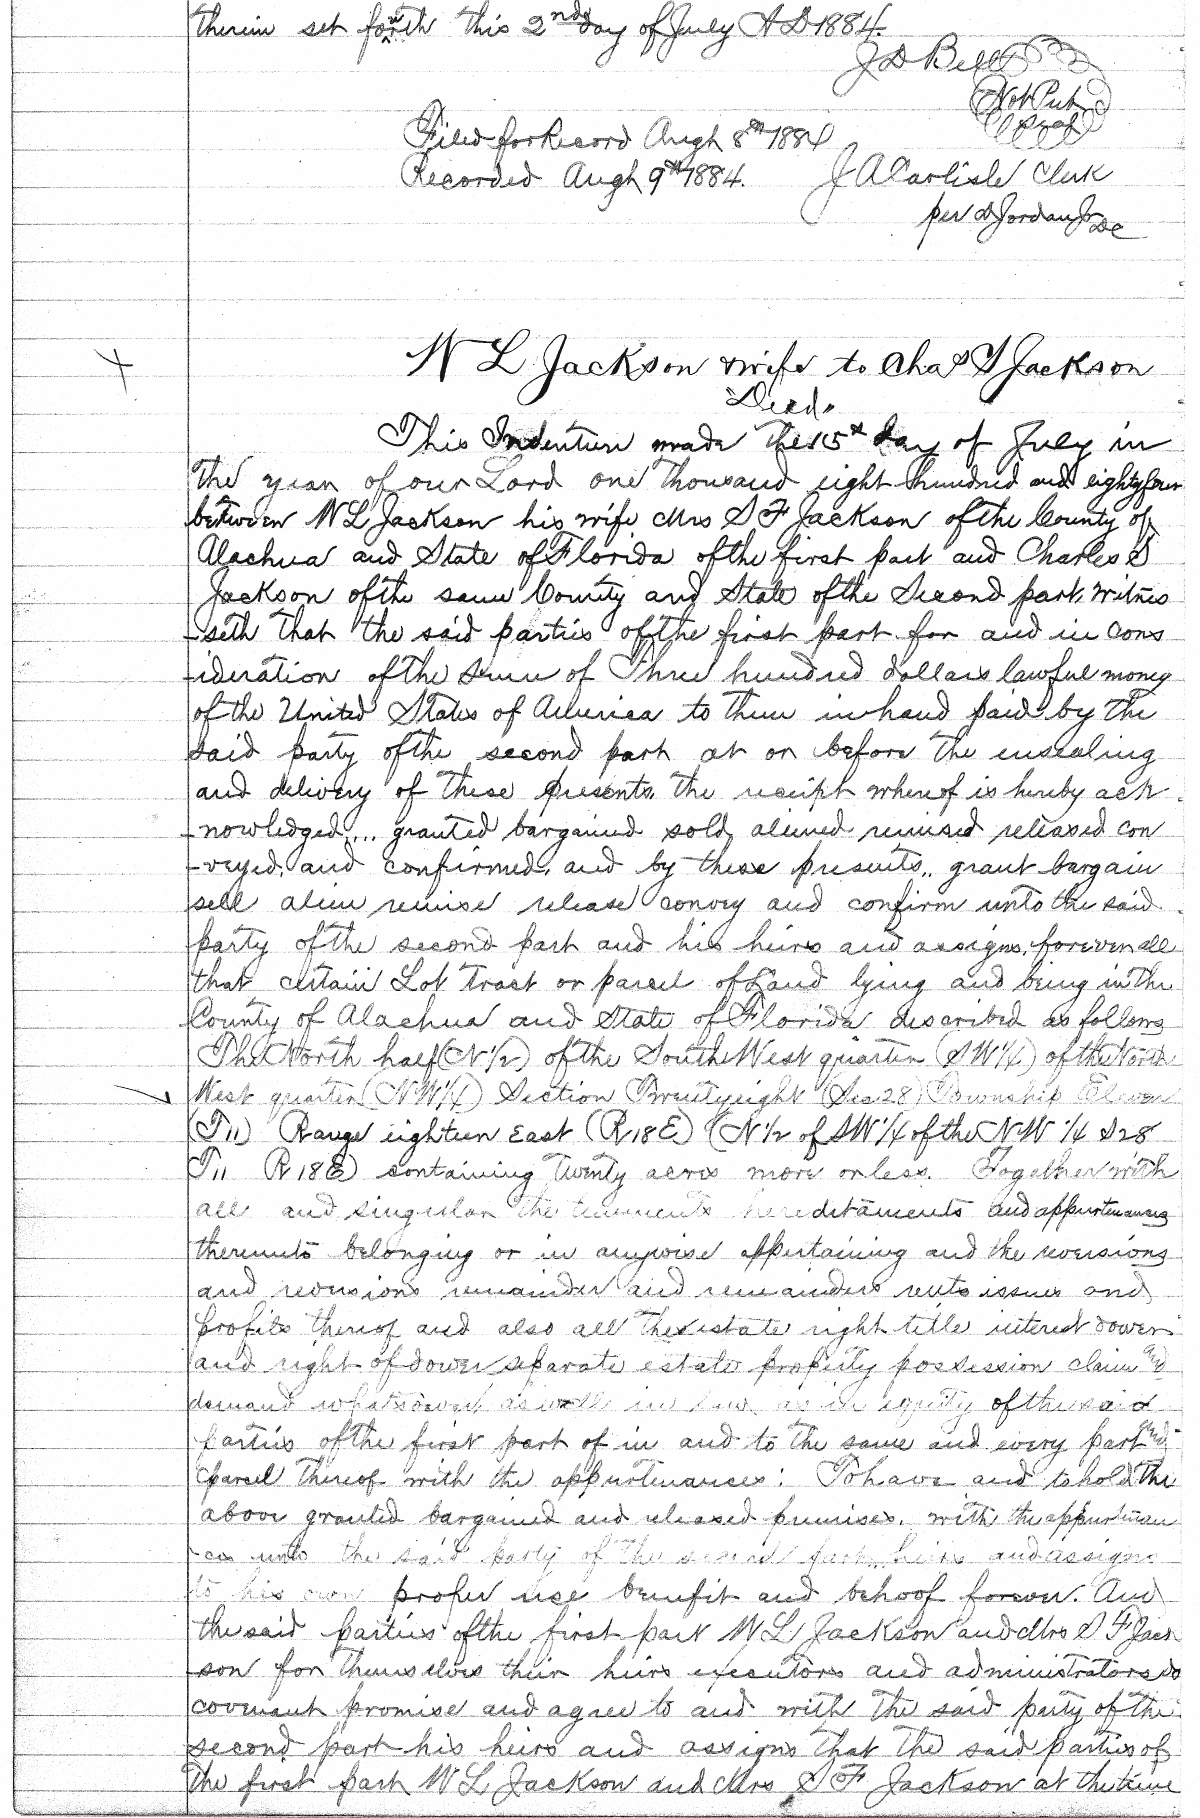 therein set forth this 2nd day of July A D 1884.
J D Bell
Not Pub
Filed for Record Augh 8th 1884
Recorded Augh 9th 1884.
J A Carlisle Clerk
per D Jordan Jr DC
W L Jackson & wife to Chas S Jackson
Deed.
This Indenture made the 15th day of July in
the year of our Lord one thousand eight hundred and eightyfour
between W L Jackson his wife Mrs S F Jackson of the County of
Alachua and State of Florida of the first part and Charles S
Jackson of the same County and State of the Second part, witnes
-seth that the said parties of the first part for and in cons
-ideration of the sum of Three hundred dollars lawful money
of the United States of America to them in hand paid by the
said party of the second part at or before the ensealing
and delivery of these presents, the receipt whereof is hereby ack
-nowledged,... granted bargained sold, aliened remised released con
-veyed, and confirmed, and by these presents,. grant bargain
sell alien remise release convey and confirm unto the said
party of the second part and his heirs and assigns, forever all
that certain Lot tract or parcel of Land lying and being in the
County of Alachua and State of Florida described as follows
The North half (N 1/2) of the South West quarter (SW 1/4) of the North
West quarter (NW 1/4) Section Twentyeight (Sec 28) Township Eleven
(T11) Range eighteen East (R18E) (N 1/2 of SW 1/4 of the NW 1/4 S 28
T11 R 18 E) containing twenty acres more or less. Together with
all and singular the tenements hereditaments and appurtenances
thereunto belonging or in anywise appertaining and the reversions
and reversions remainder and remainders rents issues and
profits thereof and also all the estate right title interest dower
and right of dower separate estate property possession claim and
demand whatsoever, as well in law as in equity of the said
parties of the first part of in and to the same and every part and
parcel thereof with the appurtenances: To have and to hold the
above granted bargained and released premises. with the appurtenan
-ces unto the said party of the second part, heirs and assigns
to his own proper use benefit and behoof forever. And
the said parties of the first part W L Jackson and Mrs S F Jack
-son for themselves their heirs executors and administrators do
covenant promise and agree to and with the said party of the
second part his heirs and assigns that the said parties of
the first part W L Jackson and Mrs S F Jackson at the time